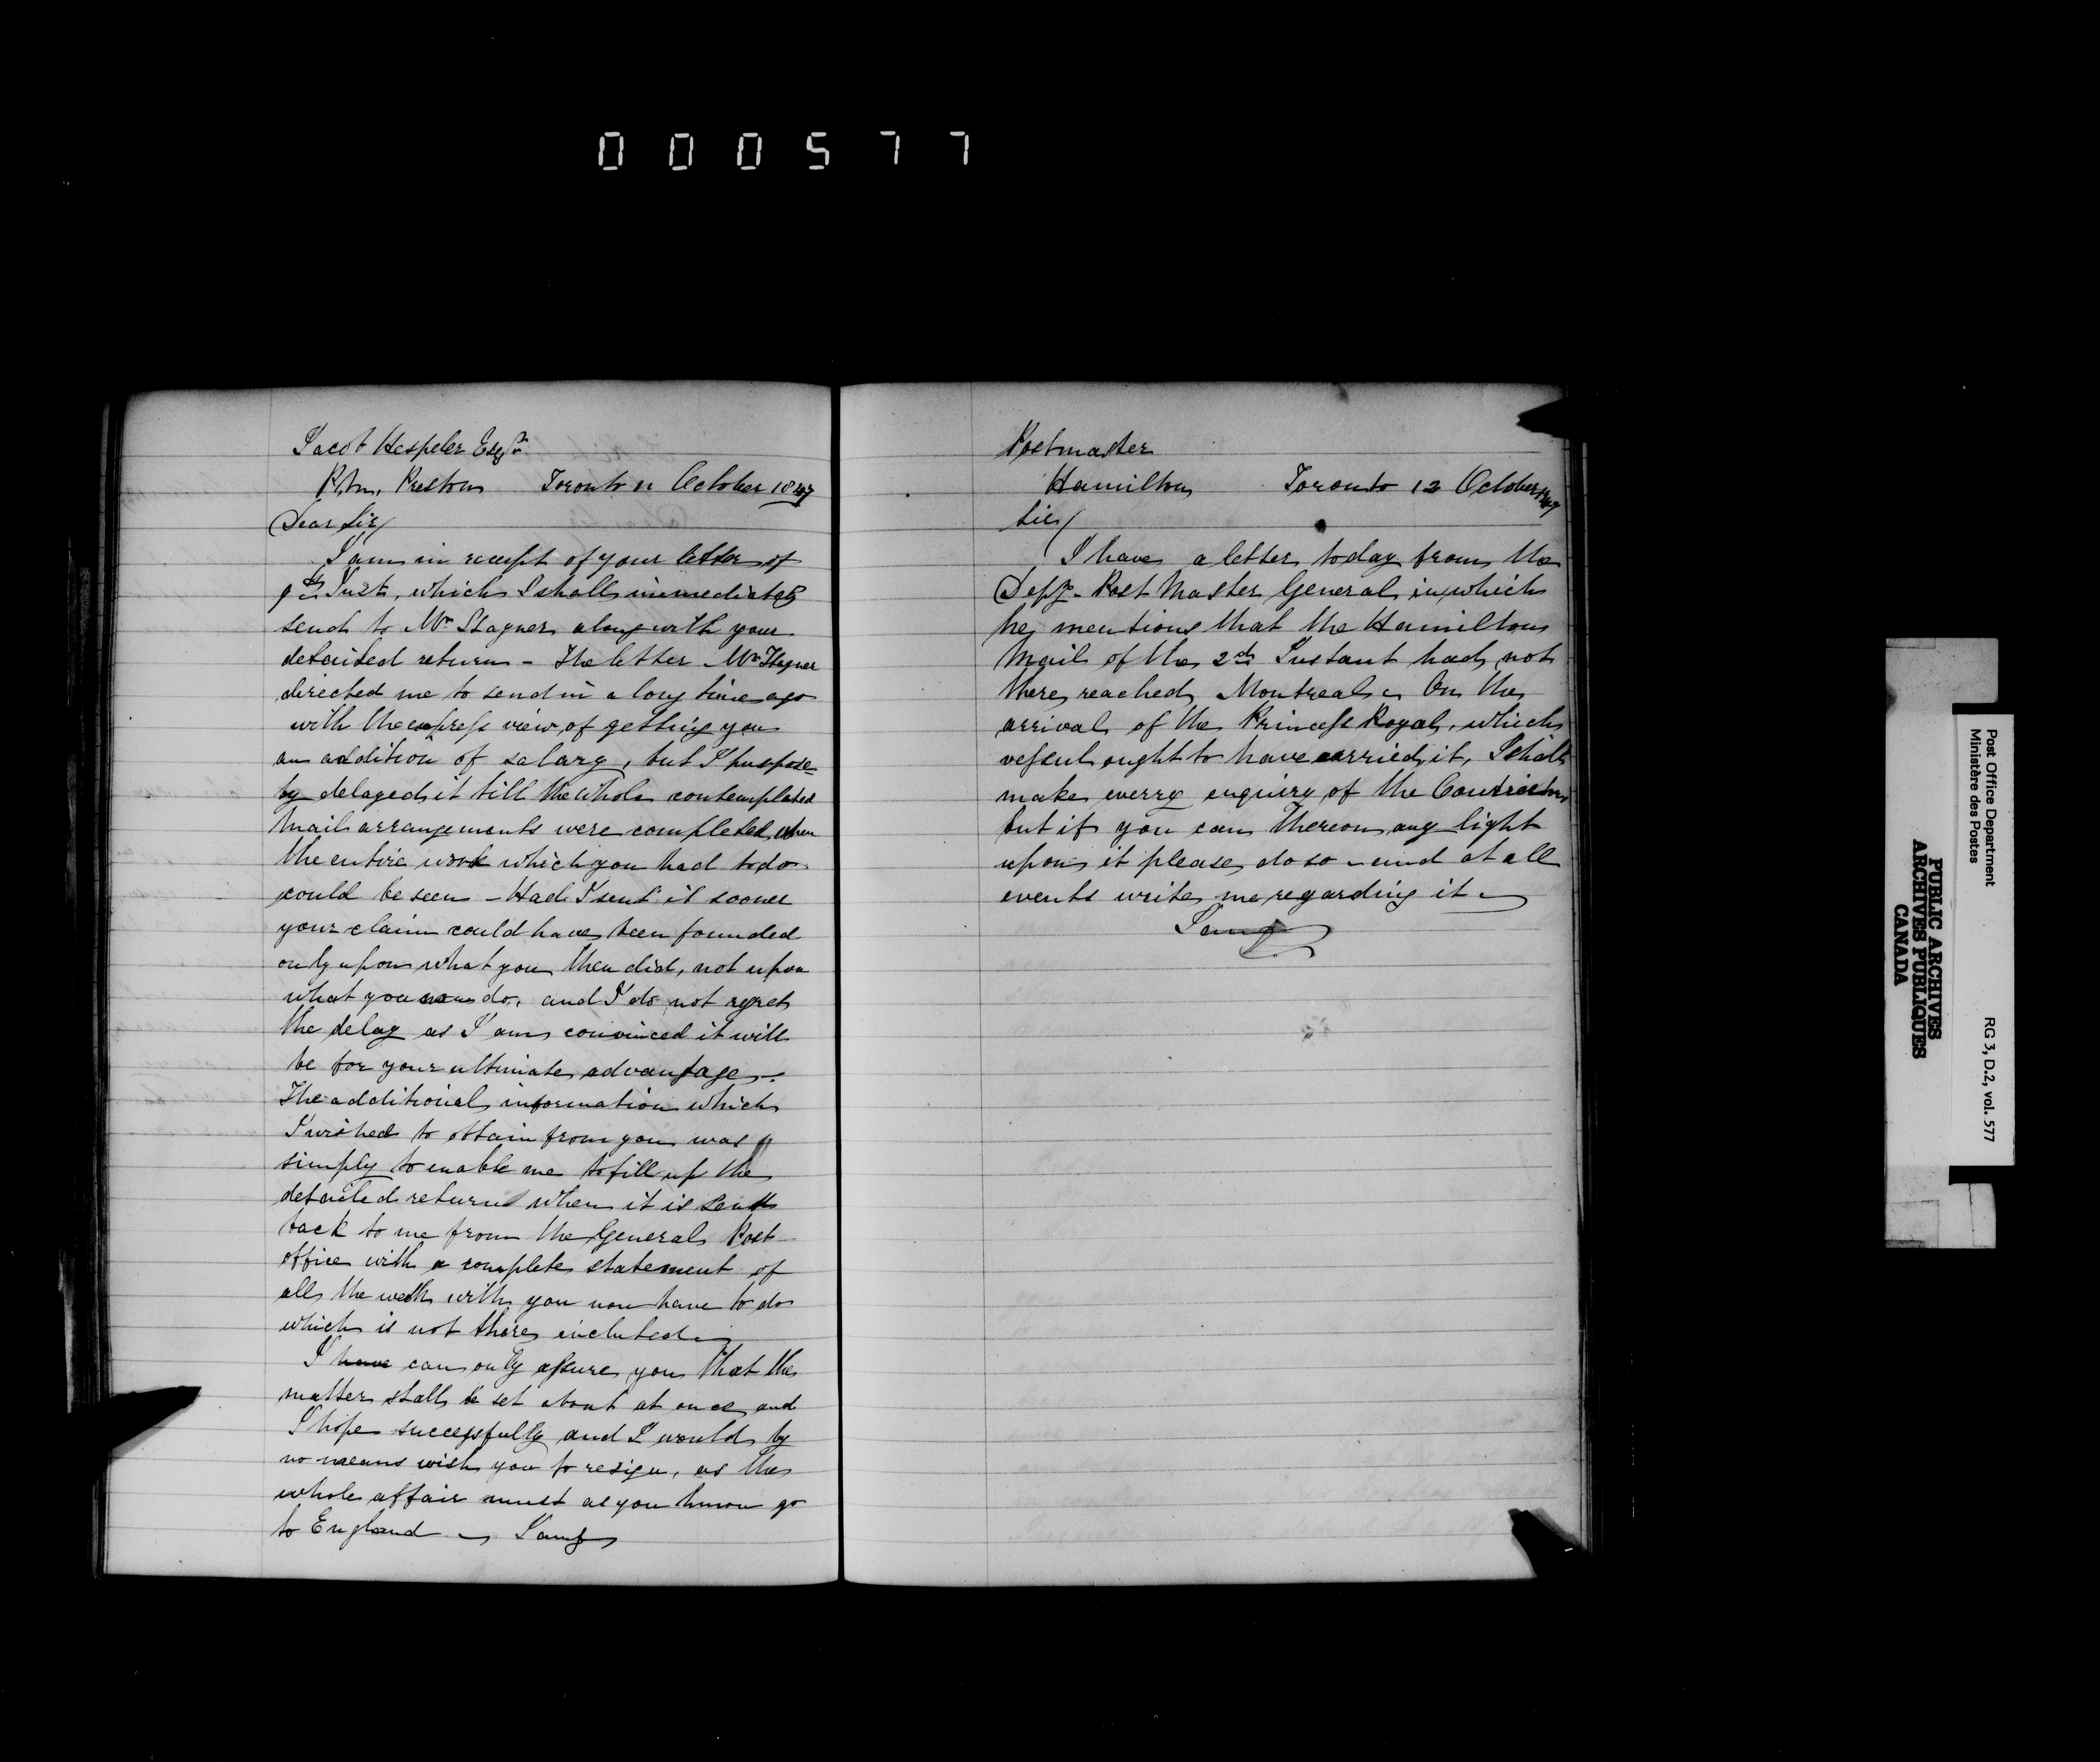 000577
Jacob Hespeler Esqr
P.M. Preston Toronto 11 October 1847
Dear Sir/
I am in receipt of your letter of
9th Inst, which I shall immediately
send to Mr Stayner along with your
detailed return - The letter Mr Stayner
directed me to send in a long time ago
with the express view of getting you
an addition of salary, but I purpose-
ly delayed it till the whole contemplated
Mail arrangements were completed, when
the entire work which you had to do
could be seen - Had I sent it sooner
your claim could have been founded
only upon what you then did, not upon
what you now do, and I do not regret
the delay as I am convinced it will
be for your ultimate advantage -
The additional information which
I wished to obtain from you was
simply to enable me to fill up the
detailed return when it is sent
back to me from the General Post
office with a complete statement of
all the work with you now have to do
which is not there included -
I have can only assure you that the
matter shall be set about at once and
I hope successfully and I would by
no means wish you to resign, as the
whole affair must as you know go
to England - I am
Postmaster
Hamilton Toronto 12 October 1847
Sir/
I have a letter today from the
Depy - Post Master General in which
he mentions that the Hamilton
Mail of the 2nd Instant had not
there reached Montreal - On the
arrival of the Princess Royal, which
vessel ought to have carried it, I shall
make everry enquiry of the Contractors
but if you can thereon any light
upon it please do so - and at all
events write me regarding it -
I am
Post Office Department
Ministère des Postes
RG 3, D.2, vol. 577
PUBLIC ARCHIVES
ARCHIVES PUBLIQUES
CANADA